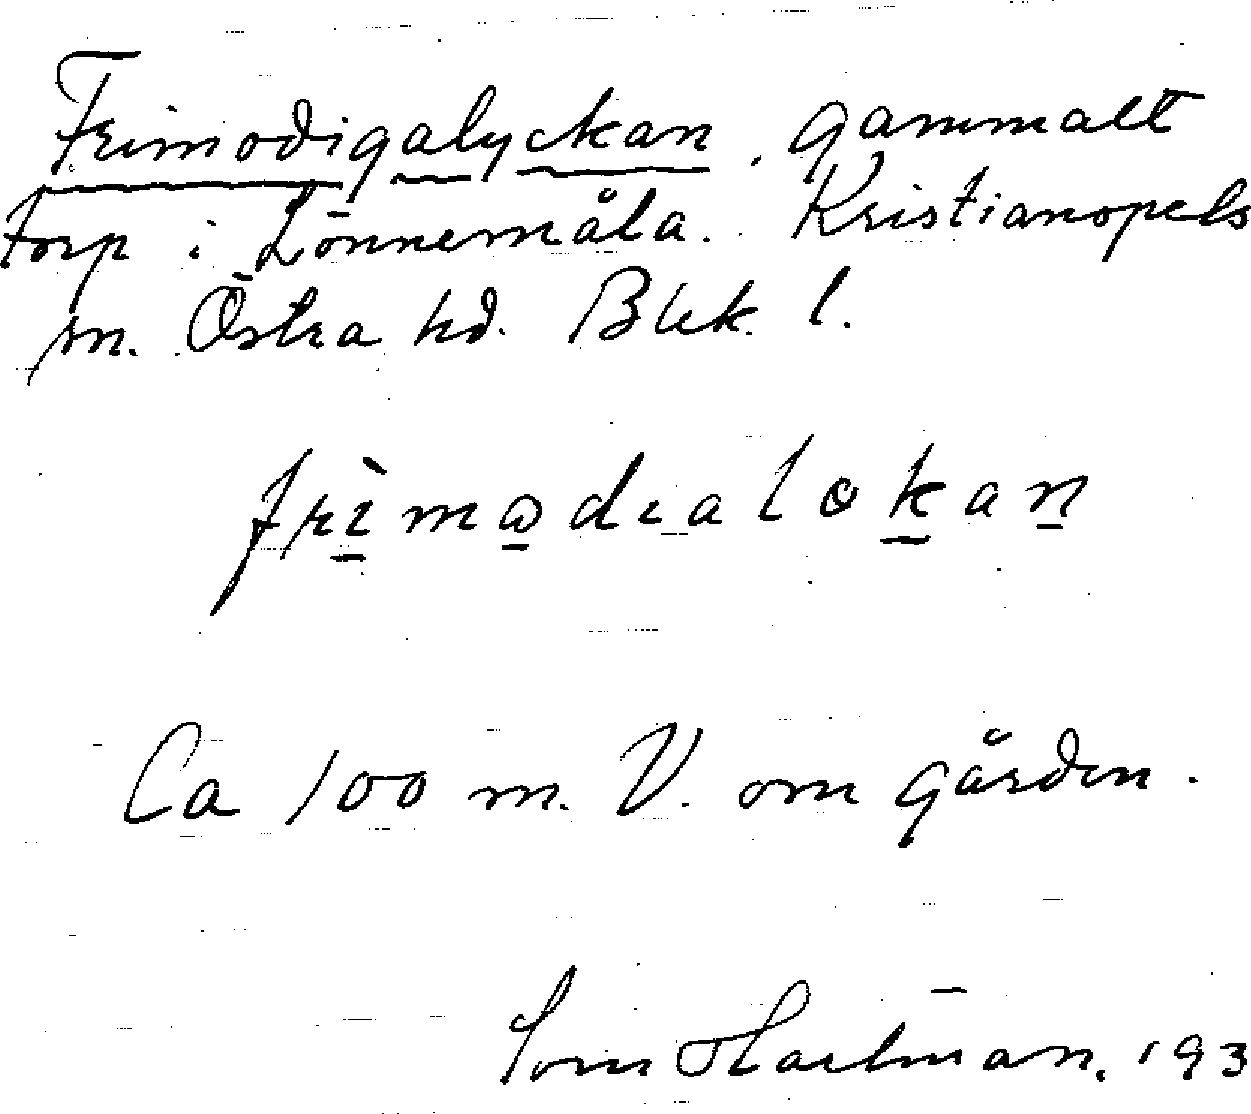 Frimodigalyckan, gammalt
torp i Lönnemåla. Kristianopels
sn. Östra hd. Blek. l.
frìmodialokan
Ca 100 m. V. om gården.
Hartman. 193